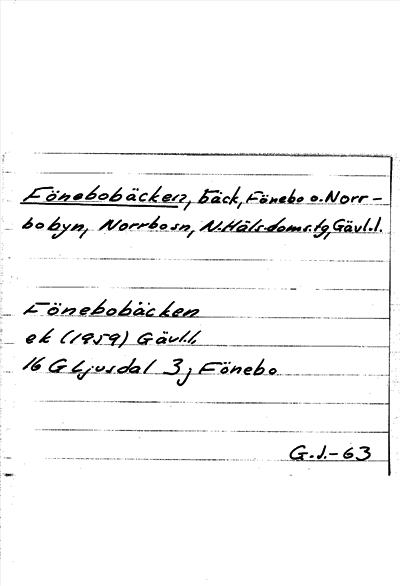 Fönebobäcken, bäck, Fönebo o. Norr-
bobyn, Norrbo sn, N. Häls. doms. tg, Gävl. l.
Fönebobäcken
ek (1959) Gävl. l.
16 G Ljusdal 3 j Fönebo
G.J.-63